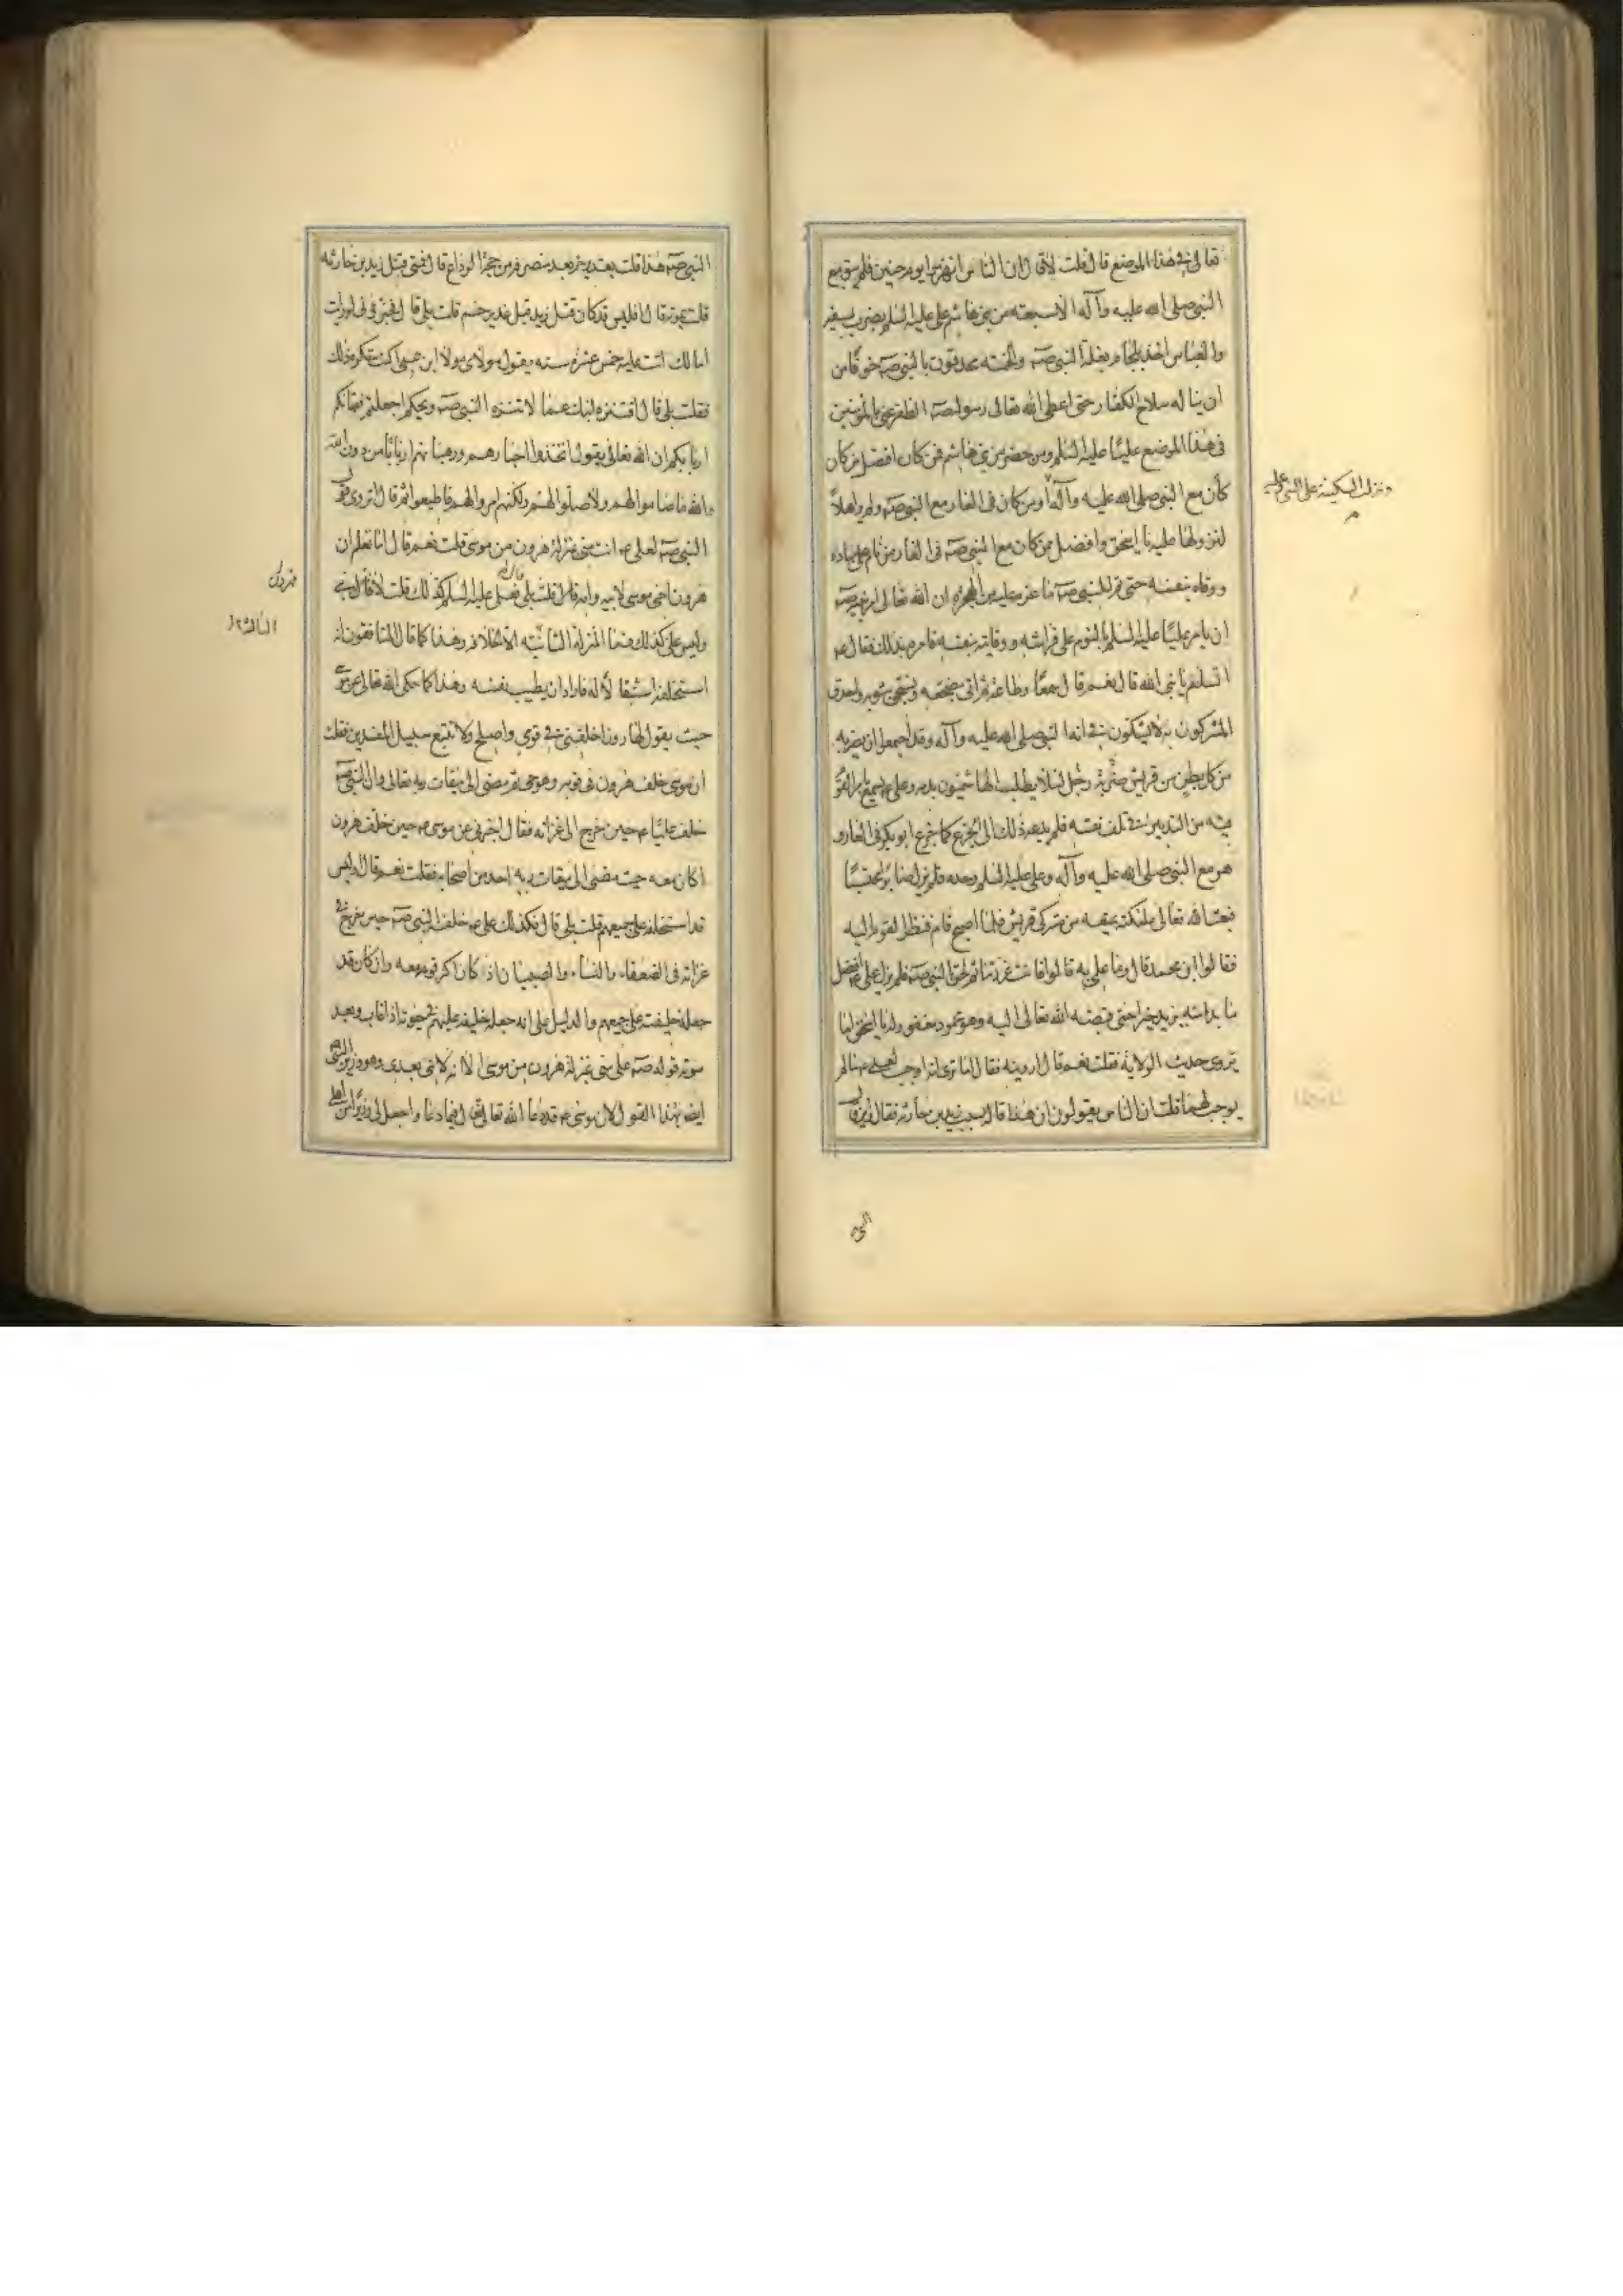 تعالى فى هذا الموضع قال قلت لا قال ان الناس انهزموا يوم حنين فلم يبق مع
النبى صلى الله عليه وآله الا سبعة من بنى هاشم على عليه السلم يضرب بسيفه
والعباس اخذ بلجام بغلة النبى صـ والخمسة محدقون بالنبى صـ خوفا من
ان يناله سلاح الكفار حتى اعطى الله تعالى رسوله صـ الظفر عنى بالمؤمنين
فى هذا الموضع عليا عليه السلم ومن حضر من بنى هاشم فمن كان افضل من كان
كان مع النبى صلى الله عليه وآله او من كان فى الغار مع النبى صـ ولم يره اهلا
لنزولها عليه يا اسحق وافضل من كان مع النبى صـ فى الغار من نام على مهاده
ووقاه بنفسه حتى تم للنبى صـ ما عزم عليه من الهجرة ان الله تعالى امر نبيه صـ
ان يامر عليا عليه السلم بالنوم على فراشه ووقايته بنفسه فامره بذلك فقال ع
اتسلم يا نبى الله قال نعم قال سمعا وطاعة ثم اتى مضجعه وتسجى بثوبه واحدق
المشركون به لا يشكون فى انه النبى صلى الله عليه وآله وقد اجمعوا ان يضربه
من كل بطن من قريش رجل ضربة لئلا يطلب الهاشميون بدمه وعلى ع يسمع بامر القوم
فيه من التدبير فى تلف نفسه فلم يدعه ذلك الى الجزع كما جزع ابو بكر فى الغار و
هو مع النبى صلى الله عليه وآله وعلى عليه السلم وحده فلم يزل صابرا محتسبا
فبعث الله تعالى ملئكته تمنعه من مشركى قريش فلما اصبح قام فنظر القوم اليه
فقالوا اين محمد قال وما علمى به قالوا فانت غررتنا ثم لحق بالنبى صـ فلم يزل على ع افضل
ما بدا منه يزيد خيرا حتى قبضه الله تعالى اليه وهو محمود مغفور له يا اسحق اما
تروى حديث الولاية فقلت نعم قال اروه فرويته فقال اما ترى انه اوجب لعلى ع ما لم
يوجب لهما قلت ان الناس يقولون ان هذا قاله بسبب زيد بن حارثة فقال
ونزلت السكينة على النبى وعليه
النبى صـ هذا قلت بغدير خم بعد منصرفه من حجة الوداع قال فمتى قتل زيد بن حارثه
قلت بموتة قال افليس قد كان قتل زيد قبل غدير خم قلت بلى قال اخبرنى لو رايت
ابنا لك اتت عليه خمس عشرة سنه يقول مولاى مولا ابن عمى اكنت تكره ذلك
فقلت بلى قال افتنزه ابنك عما لا تنزه النبى صـ ويحكم اجعلتم فقهائكم
اربابكم ان الله تعالى يقول اتخذوا احبارهم ورهبانهم اربابا من دون الله
والله ما صاموا لهم ولا صلوا لهم ولكنهم امروا لهم فاطيعوا ثم قال اتروى قول
النبى صـ لعلى ع انت منى بمنزلة هرون من موسى قلت نعم قال اما تعلم ان
هرون اخى موسى لابيه وامه قال قلت بلى قال فعلى عليه السلم كذلك قلت لا قال
وليس على كذلك فما المنزلة الثالثة الا الخلافة وهذا كما قال المنافقون انه
استخلفه استثقالا له فاراد ان يطيب نفسه وهذا كما حكى الله تعالى عن موسى
حيث يقول لهارون اخلفنى فى قومى واصلح ولا تتبع سبيل المفسدين فقلت
ان موسى خلف هرون فى قومه وهو حى ثم مضى الى ميقات ربه تعالى وان النبى صـ
خلف عليا ع حين خرج الى غزاته فقال اخبرنى عن موسى ع حين خلف هرون
اكان معه حيث مضى الى ميقات ربه احد من اصحابه فقلت نعم قال اوليس
قد استخلفه على جميعهم قلت بلى قال فكذلك على ع خلفه النبى صـ حين خرج فى
غزاته فى الضعفاء والنساء والصبيان اذ كان اكثر قومه معه وان كان قد
جعله خليفته على جميعهم والدليل على انه جعله خليفه عليهم فى حيوته اذا غاب وبعد
موته قوله صـ على منى بمنزلة هرون من موسى الا انه لا نبى بعدى وهو وزير النبى صـ
ايضا بهذا القول لان موسى ع قد دعا الله تعالى فقال فيما دعا واجعل لى وزيرا من اهلى